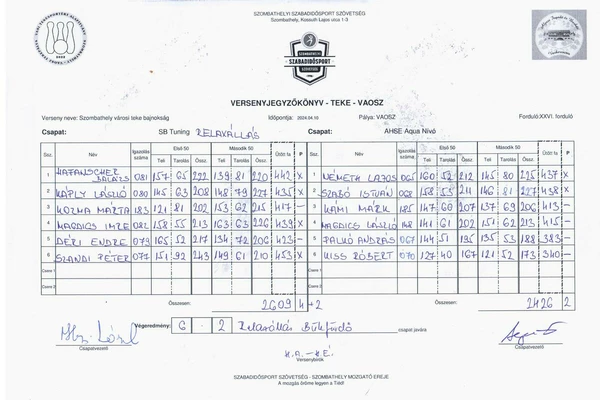 SZOMBATHELYI SZABADIDŐSPORT SZÖVETSÉG
Szombathely, Kossuth Lajos utca 1-3
SZOMBATHELYI
SZABADIDŐSPORT
SZÖVETSÉG
VERSENYJEGYZŐKÖNYV - TEKE - VAOSZ
Verseny neve: Szombathely városi teke bajnokság Időpontja: 2024.04.10 Pálya: VAOSZ Forduló: XXVI. forduló
Csapat: SB Tuning RELAXÁLLÁS Csapat: AHSE Aqua Nívó
Ssz. Név Igazolás száma Első 50 Második 50 Ütött fa P Ssz. Név Igazolás száma Első 50 Második 50 Ütött fa P
Teli Tarolás Össz. Teli Tarolás Össz. Teli Tarolás Össz. Teli Tarolás Össz.
1 HAFENSCHER BALÁZS 081 157 65 222 139 81 220 442 X 1 NÉMETH LAJOS 065 160 52 212 145 80 225 437 X
2 KÁPLY LÁSZLÓ 080 145 63 208 148 79 227 435 X 2 SZABÓ ISTVÁN 068 158 53 211 146 81 227 438 X
3 KOZMA MÁRTA 183 121 81 202 153 62 215 417 - 3 KÁMI MÁRK 185 147 60 207 137 69 206 413 -
4 MAGDICS IMRE 082 158 55 213 163 63 226 439 X 4 MAGDICS LÁSZLÓ 148 141 61 202 151 62 213 415 -
5 DÉRI ENDRE 079 165 52 217 134 72 206 423 - 5 PALKÓ ANDRÁS 067 144 51 195 135 53 188 383 -
6 SZANDI PÉTER 077 151 92 243 149 61 210 453 X 6 KISS RÓBERT 070 127 40 167 121 52 173 340 -
Csere 1 Csere 1
Csere 2 Csere 2
Összesen: 2609 4+2 Összesen: 2426 2
Végeredmény: 6 - 2 Relaxállás Bükfürdő csapat javára
Csapatvezető Csapatvezető
H.A. - H.É.
Versenybírók
SZABADIDŐSPORT SZÖVETSÉG - SZOMBATHELY MOZGATÓ EREJE
A mozgás öröme legyen a Tiéd!